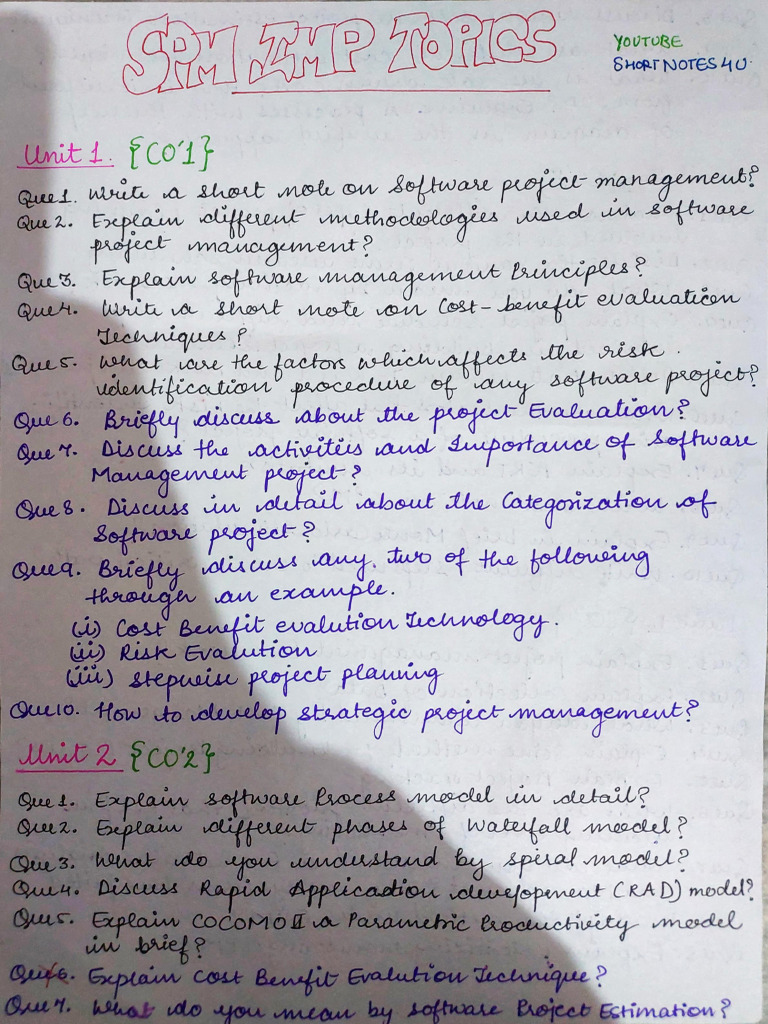 SPM IMP TOPICS
YOUTUBE
SHORT NOTES 4 U.
Unit 1. {CO'1}
Que 1. Write a short note on Software project management?
Que 2. Explain different methodologies used in software
project management?
Que 3. Explain software management Principles?
Que 4. Write a short note on Cost-benefit evaluation
Techniques?
Que 5. What are the factors which affects the risk
identification procedure of any software project?
Que 6. Briefly discuss about the project Evaluation?
Que 7. Discuss the activities and Importance of Software
Management project?
Que 8. Discuss in detail about the Categorization of
Software project?
Que 9. Briefly discuss any two of the following
through an example.
(i) Cost Benefit evalution Technology.
(ii) Risk Evalution
(iii) Stepwise project planing
Que 10. How to develop strategic project management?
Unit 2 {CO'2}
Que 1. Explain software Process model in detail?
Que 2. Explain different phases of Waterfall model?
Que 3. What do you understand by spiral model?
Que 4. Discuss Rapid Application development (RAD) model?
Que 5. Explain COCOMO II a Parametric Productivity model
in brief?
Que 6. Explain Cost Benefit Evalution Technique?
Que 7. What do you mean by Software Project Estimation?